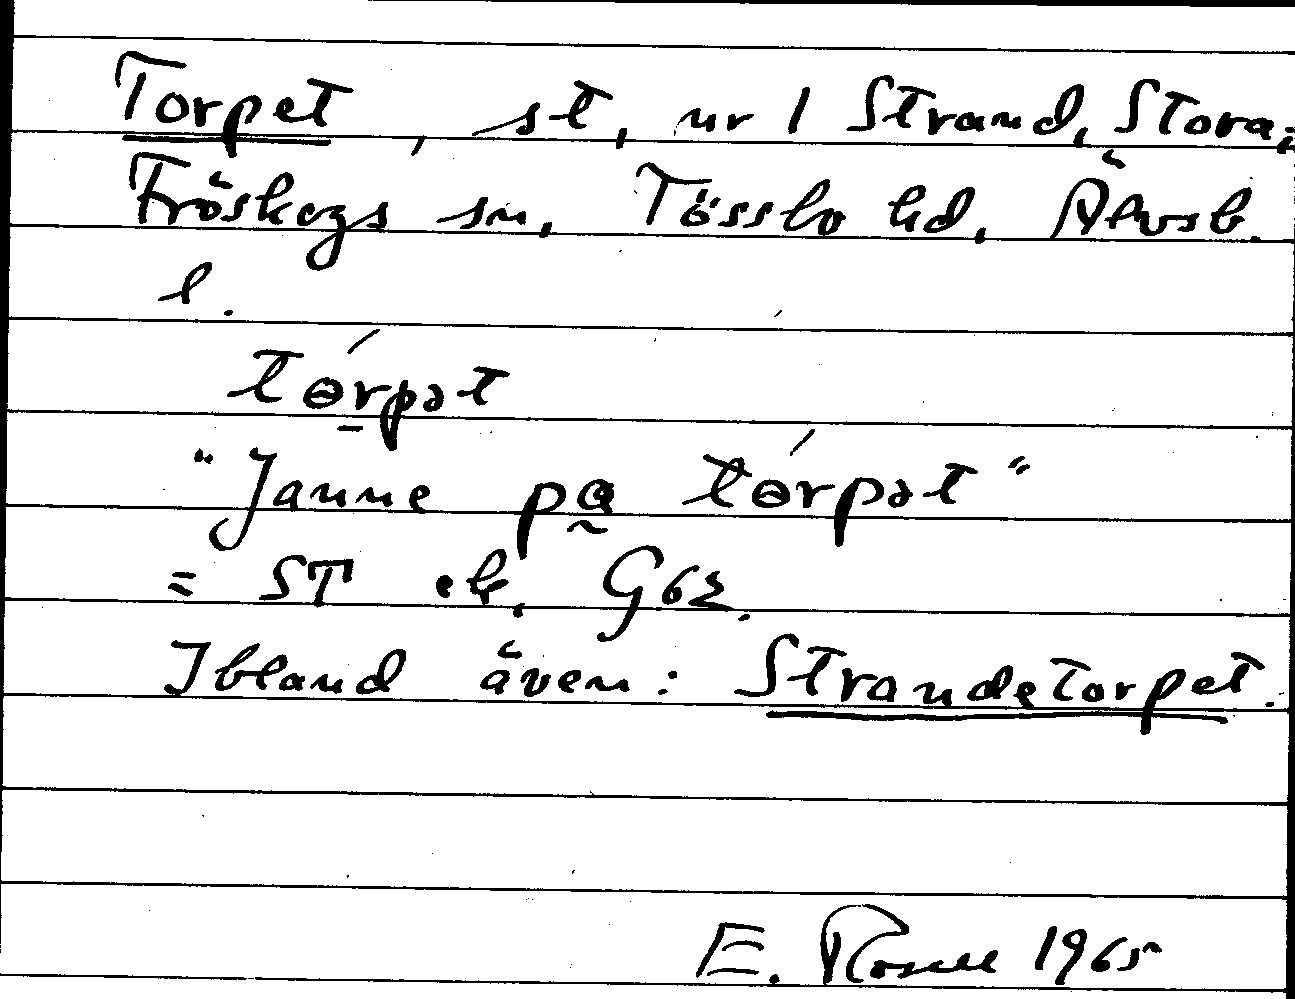 Torpet, st, nr 1 Strand, Stora,
Fröskogs sn, Tössbo hd, Älvsb.
l.
tɵ́rpət
"Janne pa̰ tɵ́rpət"
= ST ek. G62.
Ibland även: Strandetorpet.
E. Rosell 1965